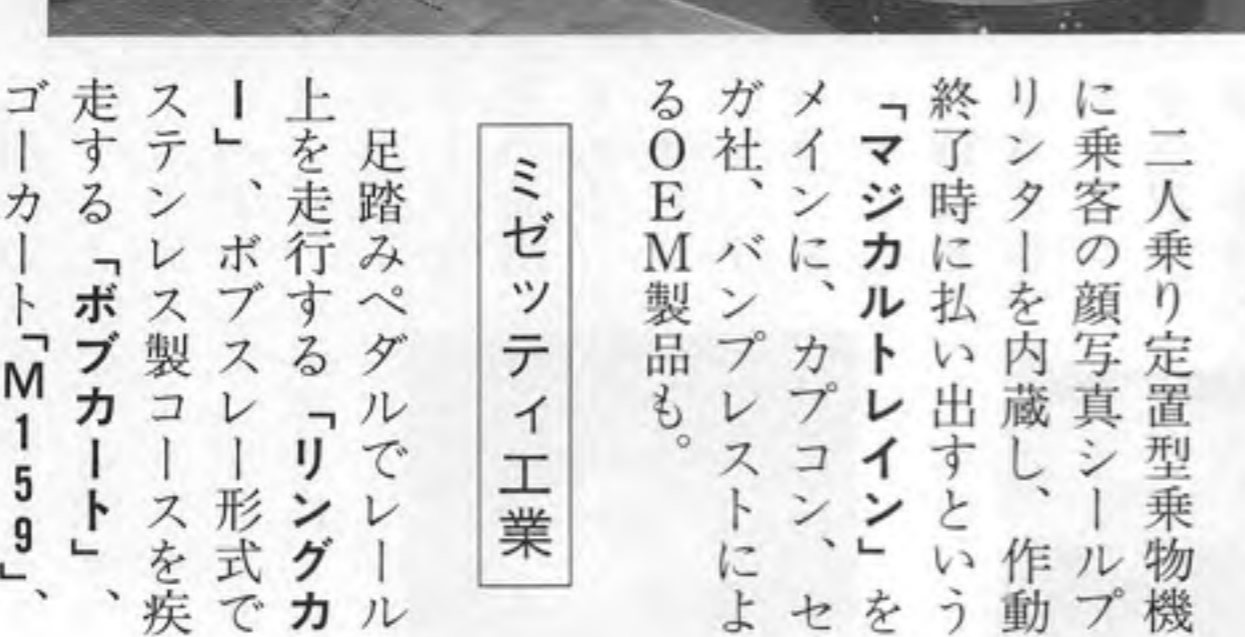 二人乗り定置型乗物機
に乗客の顔写真シールプ
リンターを内蔵し、作動
終了時に払い出すという
「マジカルトレイン」を
メインに、カプコン、セ
ガ社、バンプレストによ
るOEM製品も。
ミゼッティ工業
足踏みペダルでレール
上を走行する「リングカ
ー」、ボブスレー形式で
ステンレス製コースを疾
走する「ボブカート」、
ゴーカート「M159」、